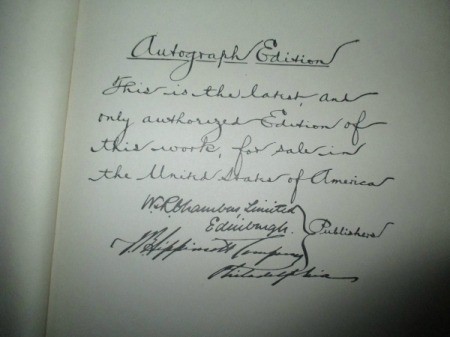 Autograph Edition
This is the latest, and
only authorized Edition of
this work, for sale in
the United States of America
W. & R. Chambers, Limited
Edinburgh.
Publishers
J. B. Lippincott Company
Philadelphia